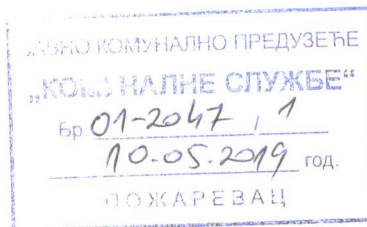 ЈАВНО КОМУНАЛНО ПРЕДУЗЕЋЕ
„КОМУНАЛНЕ СЛУЖБЕ“
Бр. 01-2047 / 1
10.05.2019 год.
ПОЖАРЕВАЦ